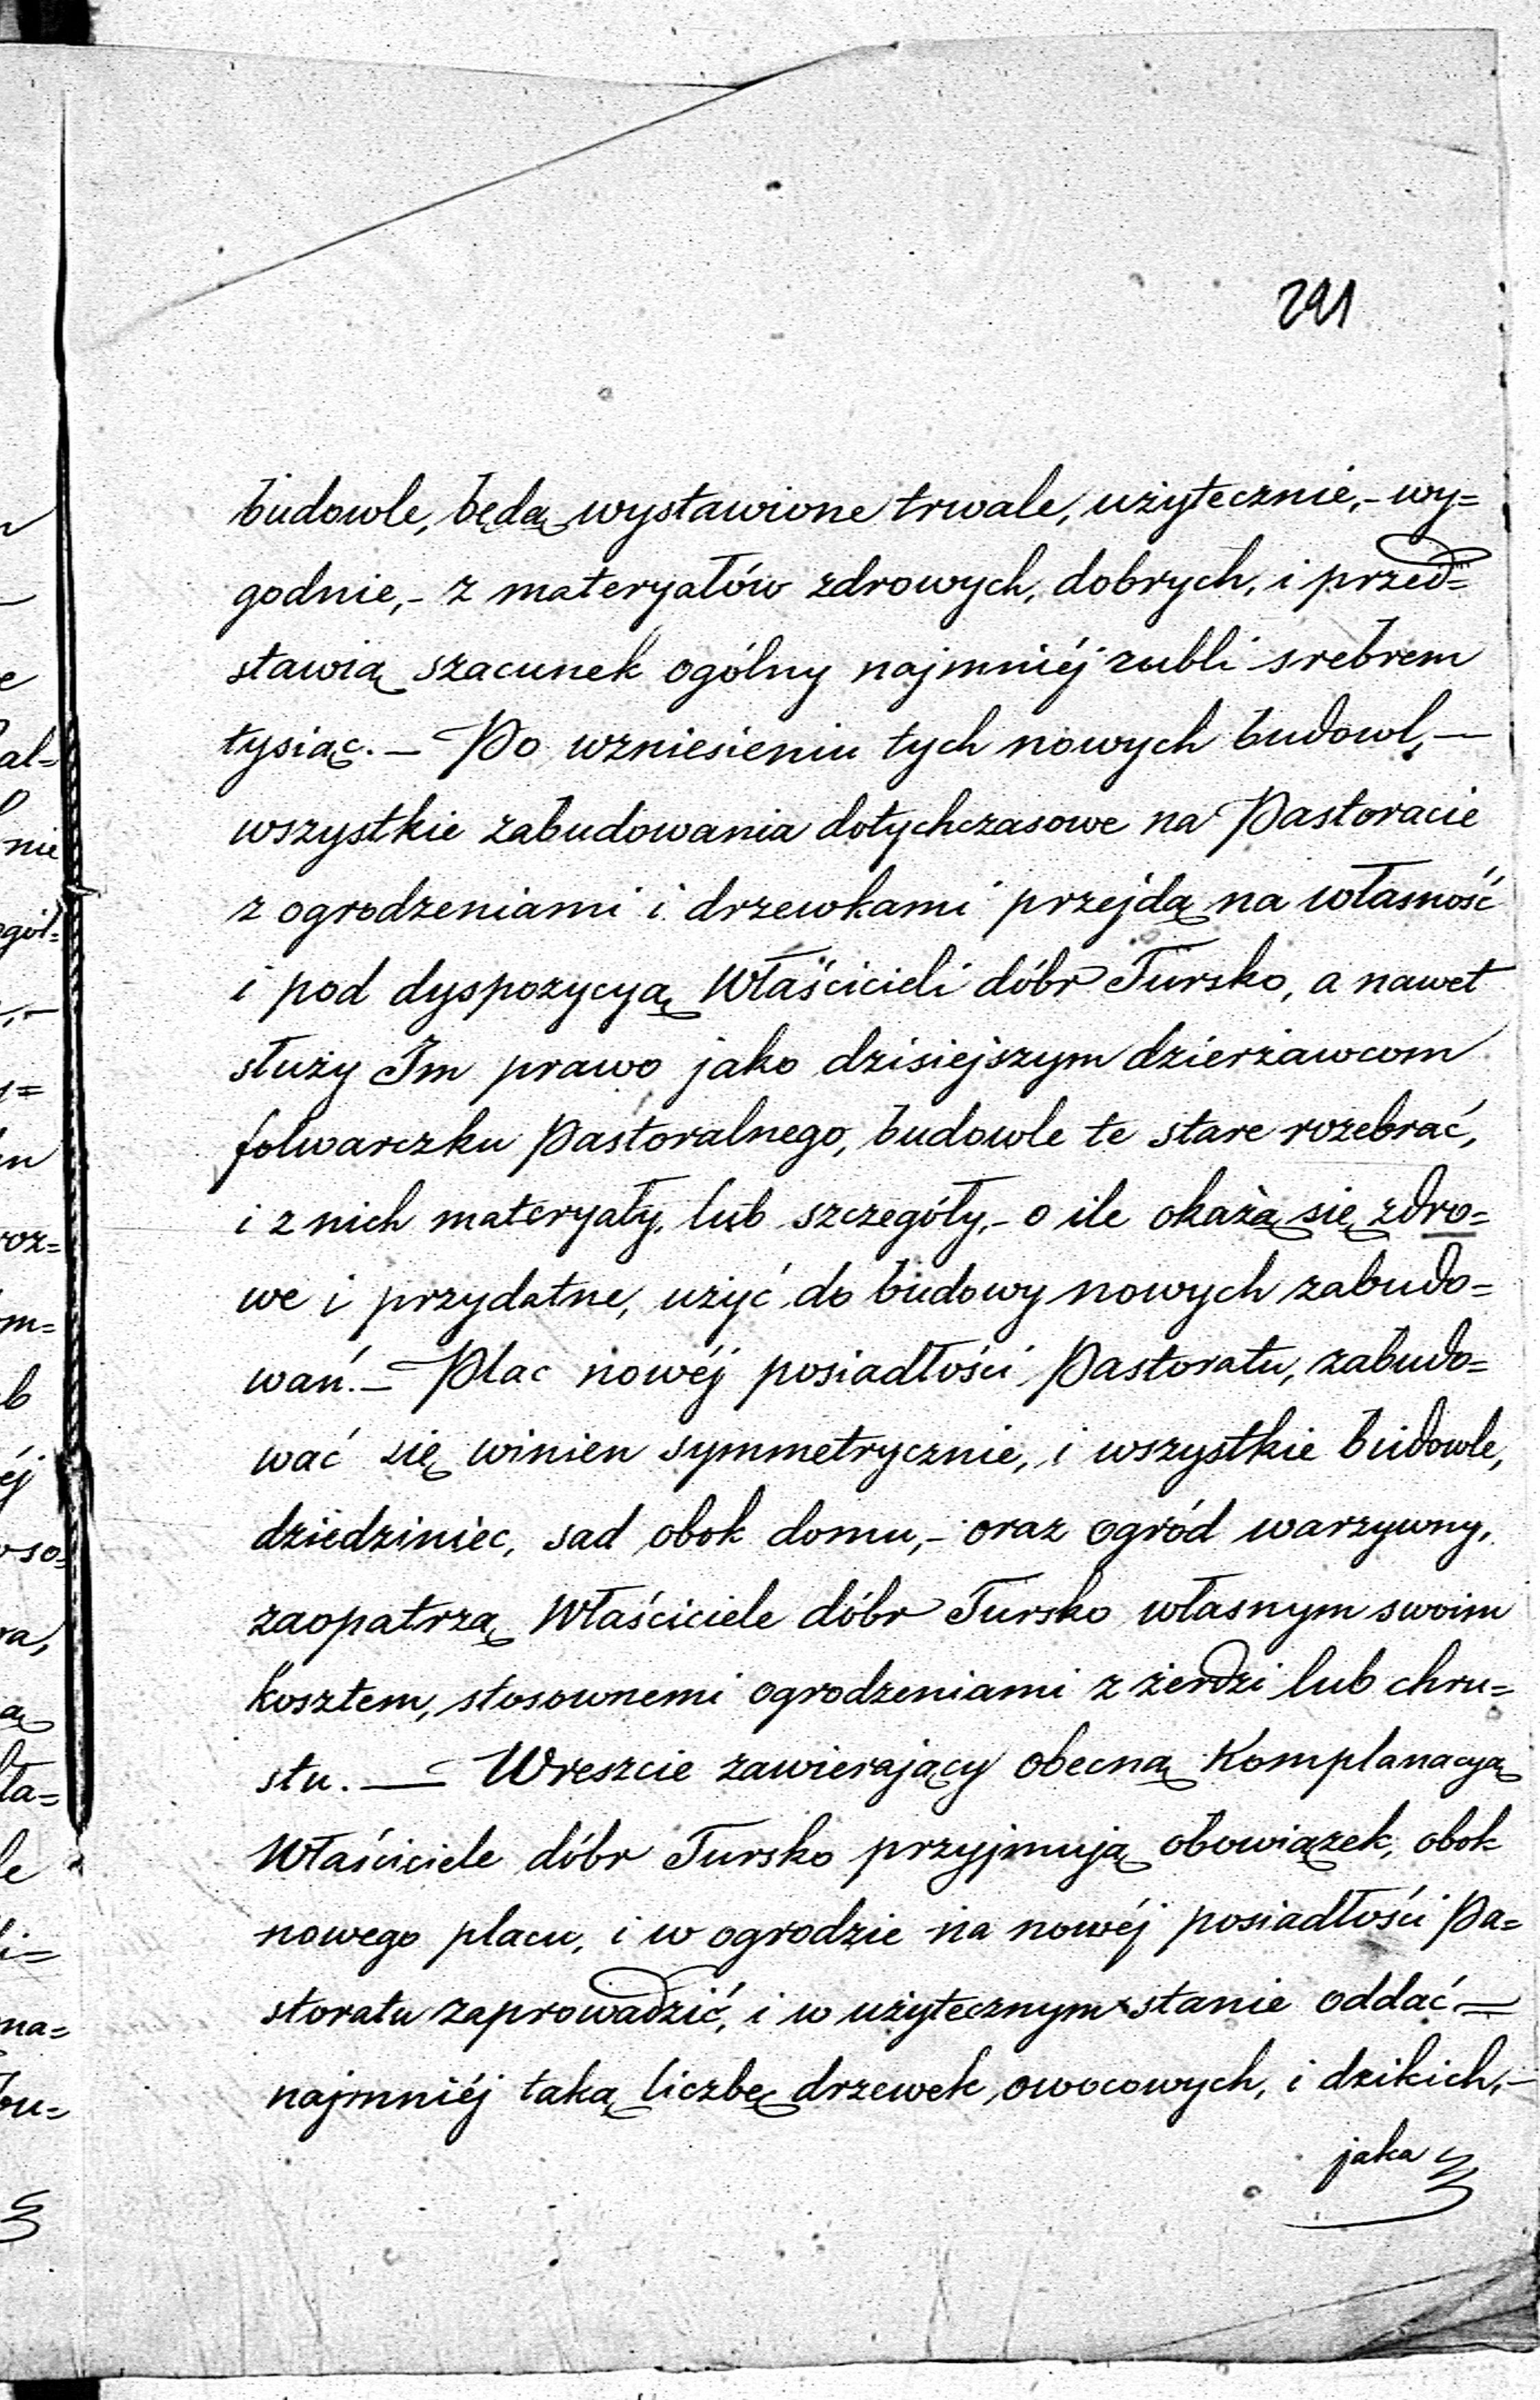 291
budowle, będą wystawione trwale, użytecznie,- wy=
godnie,- z materyałów zdrowych, dobrych, i przed=
stawią szacunek ogólny najmniéj rubli srebrem
tysiąc. — Po wzniesieniu tych nowych budowl, —
wszystkie zabudowania dotychczasowe na Pastoracie
z ogrodzeniami i drzewkami przejdą na własność
i pod dyspozycyą Właścicieli dóbr Tursko, a nawet
służy Im prawo jako dzisiejszym dzierżawcom
folwarczku Pastoralnego, budowle te stare rozebrać,
i z nich materyały, lub szczegóły,- o ile okażą się zdro=
we i przydatne, użyć do budowy nowych zabudo=
wań. — Plac nowéj posiadłości Pastoratu, zabudo=
wać się winien symmetrycznie, i wszystkie budowle,
dziedziniec, sad obok domu,- oraz ogród warzywny,
zaopatrzą Właściciele dóbr Tursko własnym swoim
kosztem, stosownemi ogrodzeniami z żerdzi lub chru=
stu. — Wreszcie zawierający obecną Komplanacyą
Właściciele dóbr Tursko przyjmują obowiązek, obok
nowego placu, i w ogrodzie na nowéj posiadłości Pa=
storatu zaprowadzić, i w użytecznym stanie oddać —
najmniéj taką liczbę drzewek owocowych, i dzikich, —
jaka